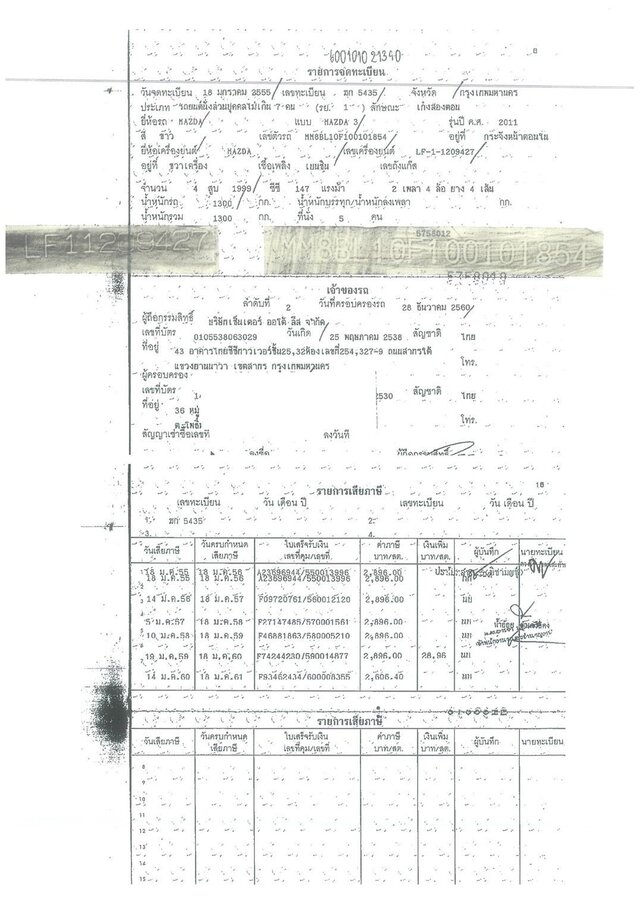 6001010 21340
8
รายการจดทะเบียน
วันจดทะเบียน 18 มกราคม 2555 เลขทะเบียน ฆก 5435 จังหวัด กรุงเทพมหานคร
ประเภท รถยนต์นั่งส่วนบุคคลไม่เกิน 7 คน (รย. 1 ) ลักษณะ เก๋งสองตอน
ยี่ห้อรถ MAZDA แบบ MAZDA 3 รุ่นปี ค.ศ. 2011
สี ขาว เลขตัวรถ MM8BL10F100101854 อยู่ที่ กระจังหน้าตอนใน
ยี่ห้อเครื่องยนต์ MAZDA เลขเครื่องยนต์ LF-1-1209427
อยู่ที่ ขวาเครื่อง เชื้อเพลิง เบนซิน เลขถังแก๊ส
จำนวน 4 สูบ 1999 ซีซี 147 แรงม้า 2 เพลา 4 ล้อ ยาง 4 เส้น
น้ำหนักรถ 1300 กก. น้ำหนักบรรทุก/น้ำหนักลงเพลา กก.
น้ำหนักรวม 1300 กก. ที่นั่ง 5 คน
5758012
LF112 9427 MM8BL10F100101854
เจ้าของรถ
ลำดับที่ 2 วันที่ครอบครองรถ 28 ธันวาคม 2560
ผู้ถือกรรมสิทธิ์ บริษัทเซ็นเตอร์ ออโต้ ลีส จำกัด
เลขที่บัตร 0105538063029 วันเกิด 25 พฤษภาคม 2538 สัญชาติ ไทย
ที่อยู่ 43 อาคารไทยซีซีทาวเวอร์ชั้น25,32ห้องเลขที่254,327-9 ถนนสาทรใต้
แขวงยานนาวา เขตสาทร กรุงเทพมหานคร โทร.
ผู้ครอบครอง
เลขที่บัตร 1 2530 สัญชาติ ไทย
ที่อยู่ 36 หมู่
โทร.
สัญญาเช่าซื้อเลขที่ ลงวันที่
ลงชื่อ ผู้ถือกรรมสิทธิ์
18
รายการเสียภาษี
เลขทะเบียน วัน เดือน ปี เลขทะเบียน วัน เดือน ปี
1. ฆก 5435 2.
3. 4.
วันเสียภาษี วันครบกำหนดเสียภาษี ใบเสร็จรับเงิน เลขที่คุม/เลขที่ ค่าภาษี บาท/สต. เงินเพิ่ม บาท/สต. ผู้บันทึก นายทะเบียน
18 ม.ค.55 18 ม.ค.56 A23696944/550013996 2,896.00
18 ม.ค.55 18 ม.ค.56 A23696944/550013996 2,896.00
14 ม.ค.56 18 ม.ค.57 F09720761/560012120 2,896.00
5 ม.ค.57 18 ม.ค.58 F27147485/570001561 2,896.00
10 ม.ค.58 18 ม.ค.59 F46881863/580005210 2,896.00
19 ม.ค.59 18 ม.ค.60 F74244230/590014877 2,896.00 28.96
14 ม.ค.60 18 ม.ค.61 F93462434/600008355 2,606.40
รายการเสียภาษี
วันเสียภาษี วันครบกำหนดเสียภาษี ใบเสร็จรับเงิน เลขที่คุม/เลขที่ ค่าภาษี บาท/สต. เงินเพิ่ม บาท/สต. ผู้บันทึก นายทะเบียน
8
9
10
11
12
13
14
15